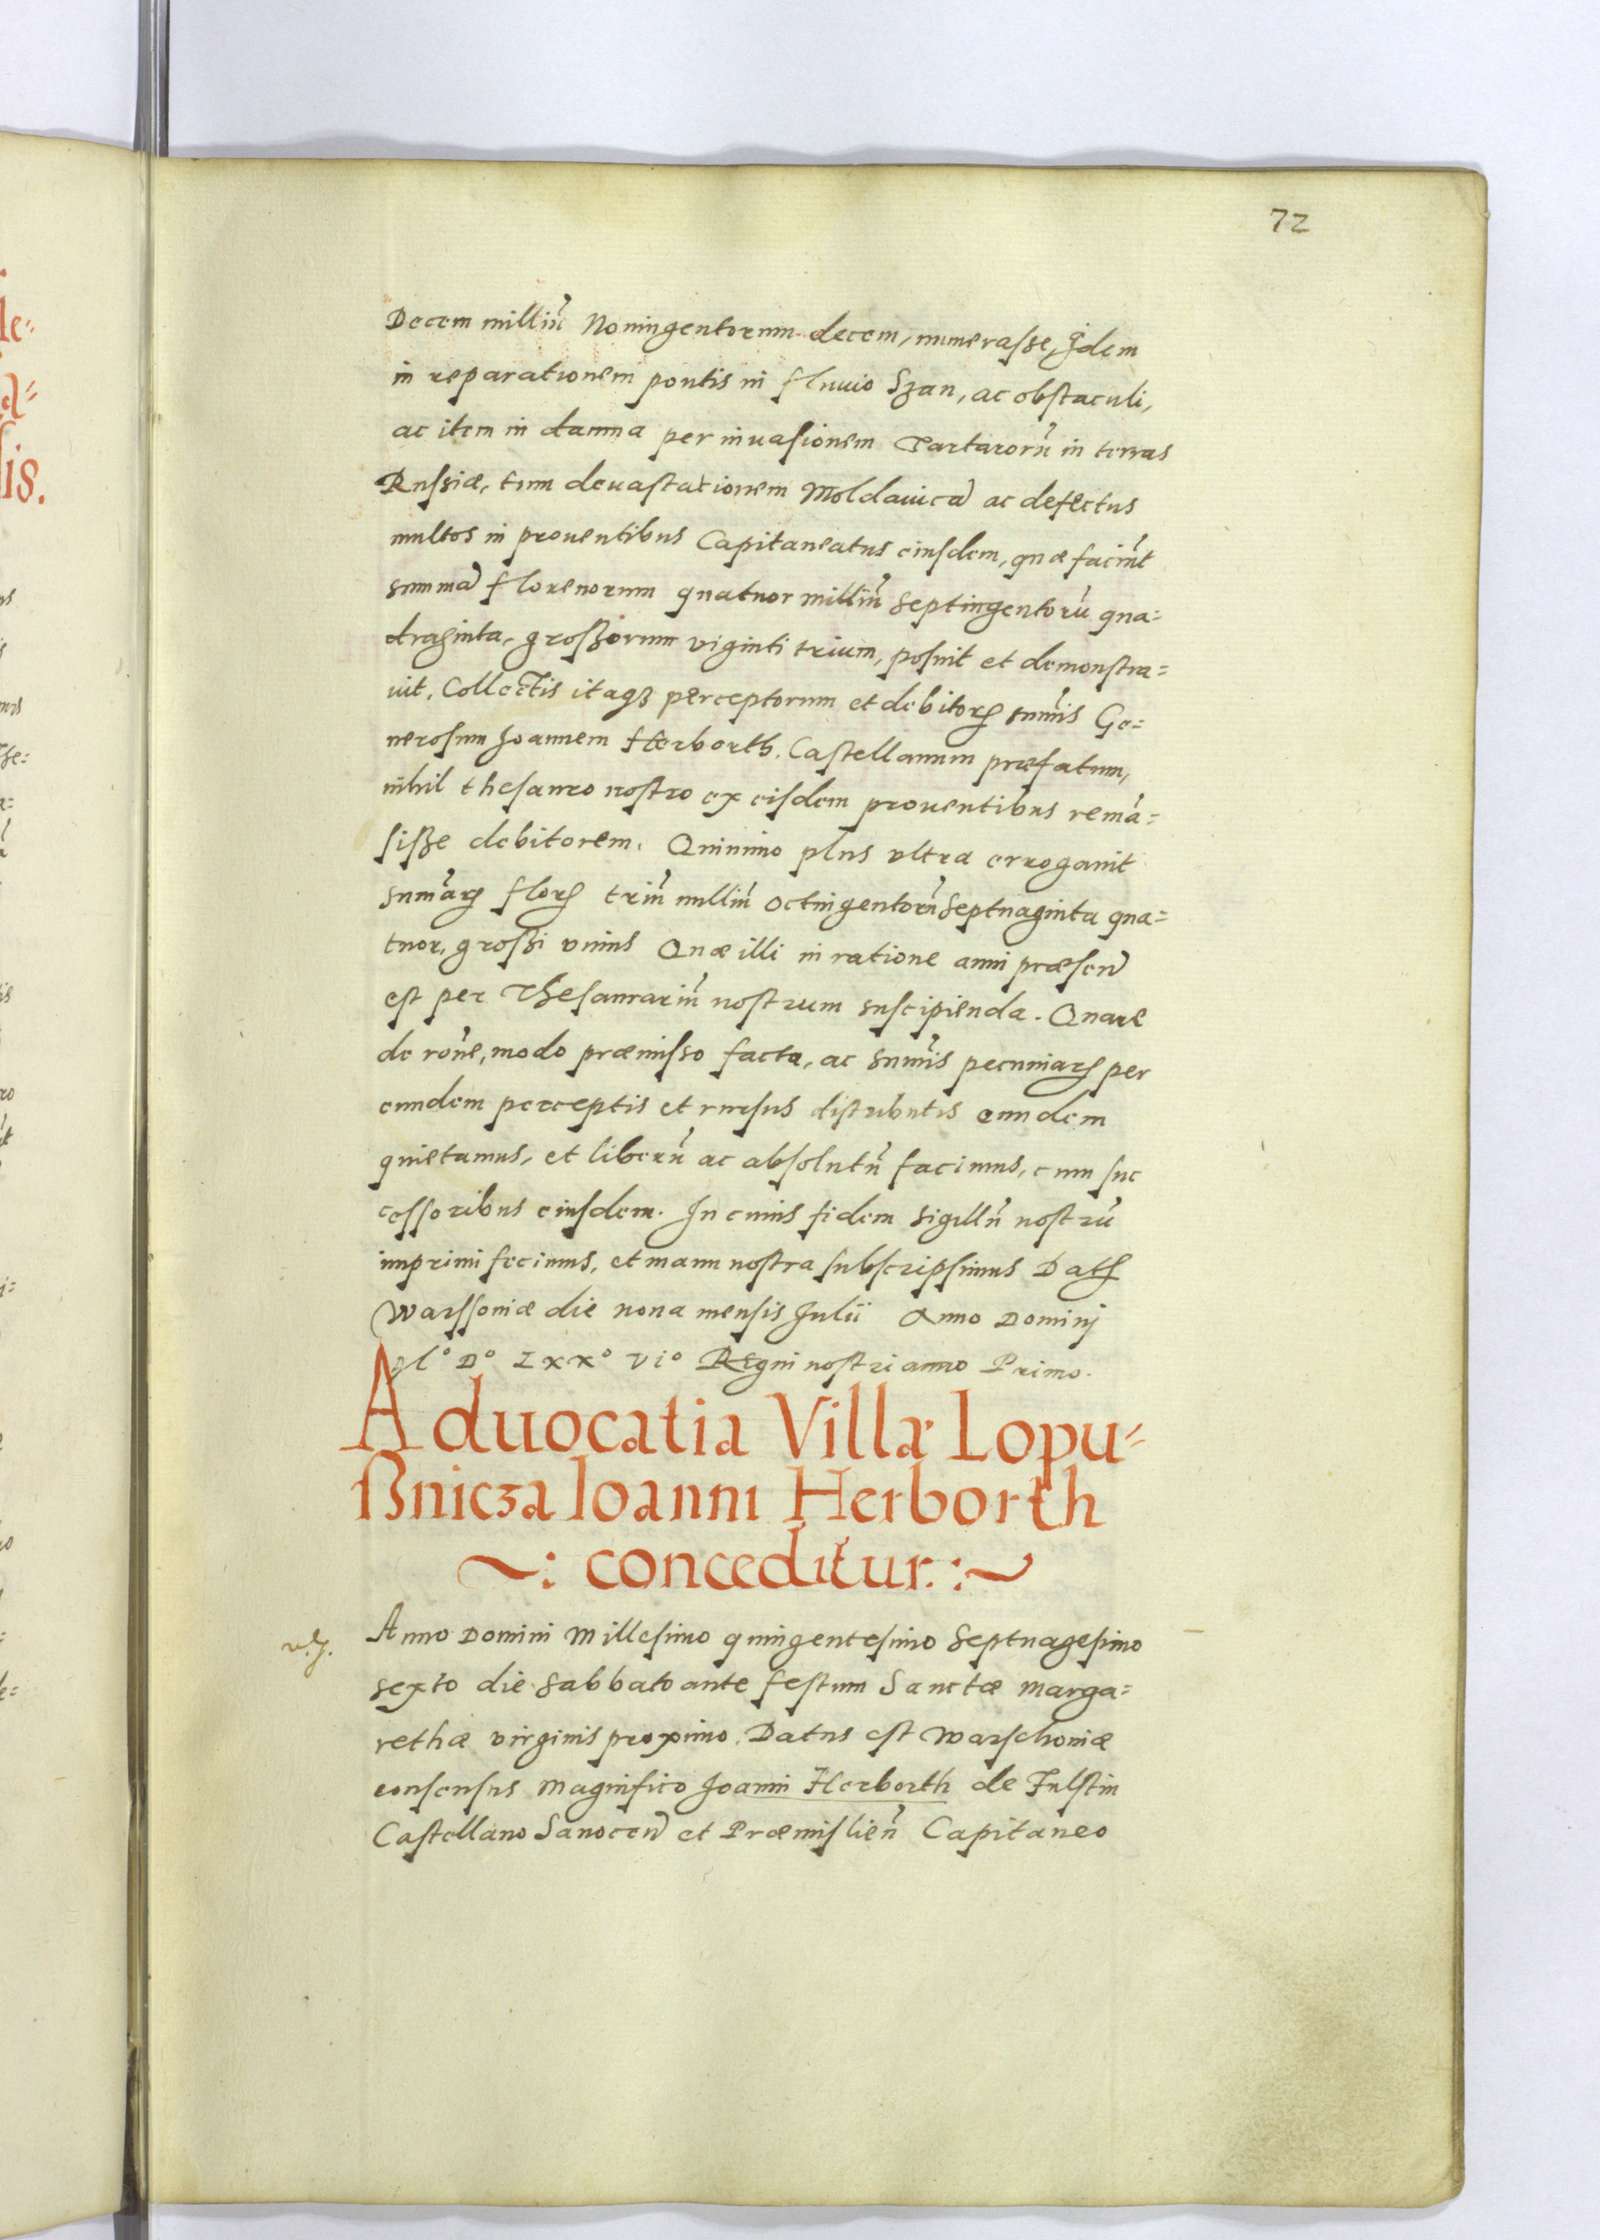 72
Decem milliũ Noningentorum decem, numerasse, Idem
in reparationem pontis in fluuio Szan, ac obstaculi,
ac item in damna per inuasionem Tartarorũ in terras
Russiæ, tum deuastationem Moldauicã ac defectus
multos in prouentibus Capitaneatus eiusdem, quæ faciũt
summã florenorum quatuor milliũ septingentorũ qua=
draginta, grossorum viginti trium, posuit et demonstra=
uit. Collectis itaqȝ perceptorum et debitorꝝ sum̃is Ge=
nerosum Joannem Herborth. Castellanum præfatum,
nihil thesauro nostro ex eisdem prouentibus remã=
sisse debitorem. Quinimo plus vltra erogauit
sum̃arꝝ florꝝ triũ milliũ octingentorũ septuaginta qua=
tuor, grossi vnius Quæ illi in ratione anni præseñ
est per Thesaurariũ nostrum suscipienda. Quare
de rõne, modo præmisso facta, ac sum̃is pecuniarꝝ per
eundem perceptis et rursus distributis eundem
quietamus, et liberũ ac absolutũ facimus, cum suc
cessoribus eiusdem. In cuius fidem sigillũ nostrũ
imprimi fecimus, et manu nostra subscripsimus Datꝭ
Warssoviæ die nona mensis Julii Anno Dominj
Mº Dº Lxxº viº Regni nostri anno Primo.
Aduocatia Villæ Lopu=
ßnicza Ioanni Herborth
~: conceditur. :~
Anno Domini Millesimo quingentesimo Septuagesimo
sexto die Sabbato ante festum Sanctæ Marga=
rethæ virginis proximo. Datus est Warschoviæ
consensus Magnifico Joanni Herborth de Fulstin
Castellano Sanoceñ et Præmislieñ Capitaneo